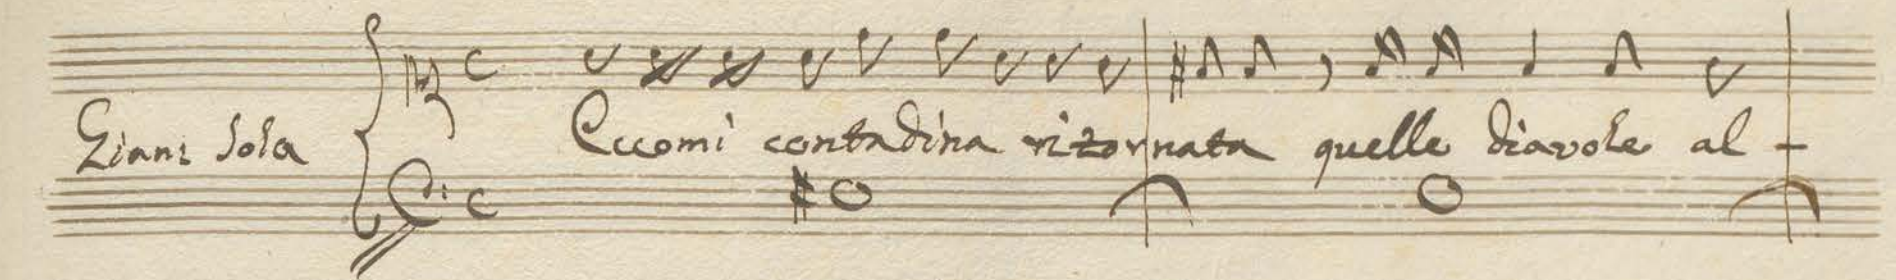 Giani Sola Eccomi contadina ritornata quelle diavole al-